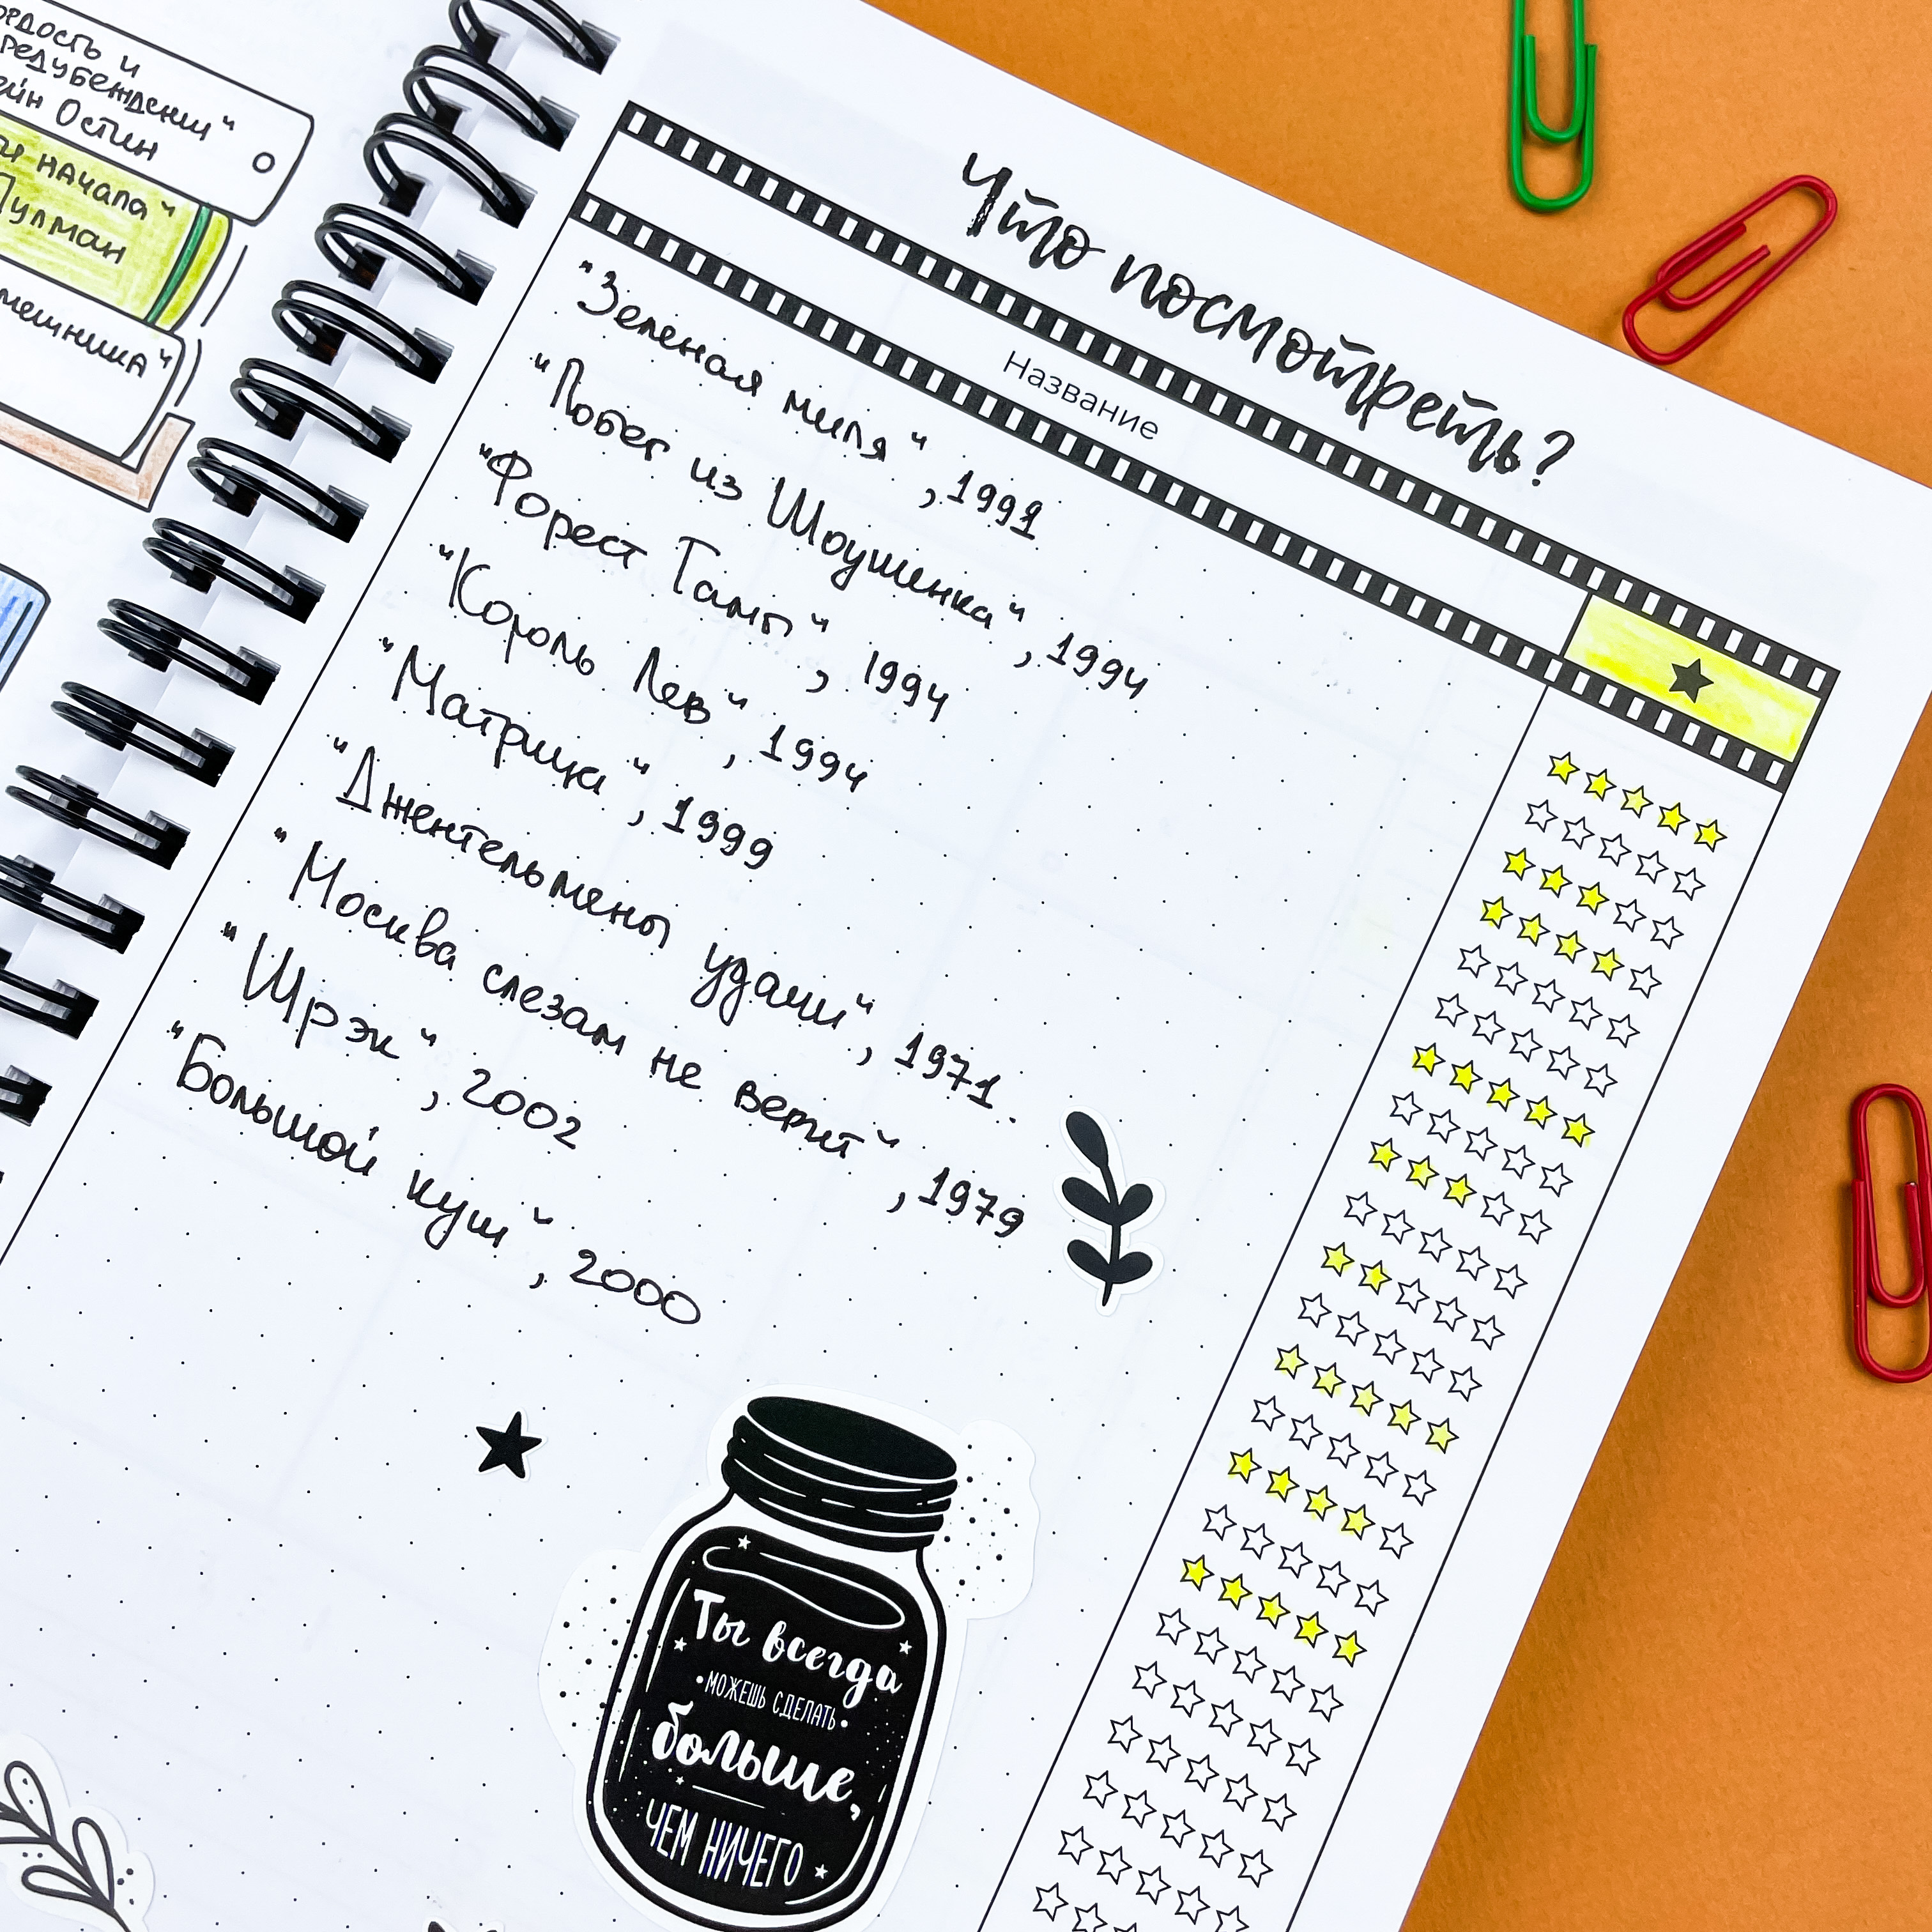 рдость и
редубеждении"
ейн Остин
и начала"
Пулман
мешника"
Что посмотреть?
Название
"Зеленая миля", 1991
"Побег из Шоушенка", 1994
"Форест Гамп", 1994
"Король Лев", 1994
"Матрица", 1999
"Джентельмены удачи", 1971.
"Москва слезам не верит", 1979
"Шрэк", 2002
"Большой куш", 2000
Ты всегда
•можешь сделать•
больше,
чем ничего